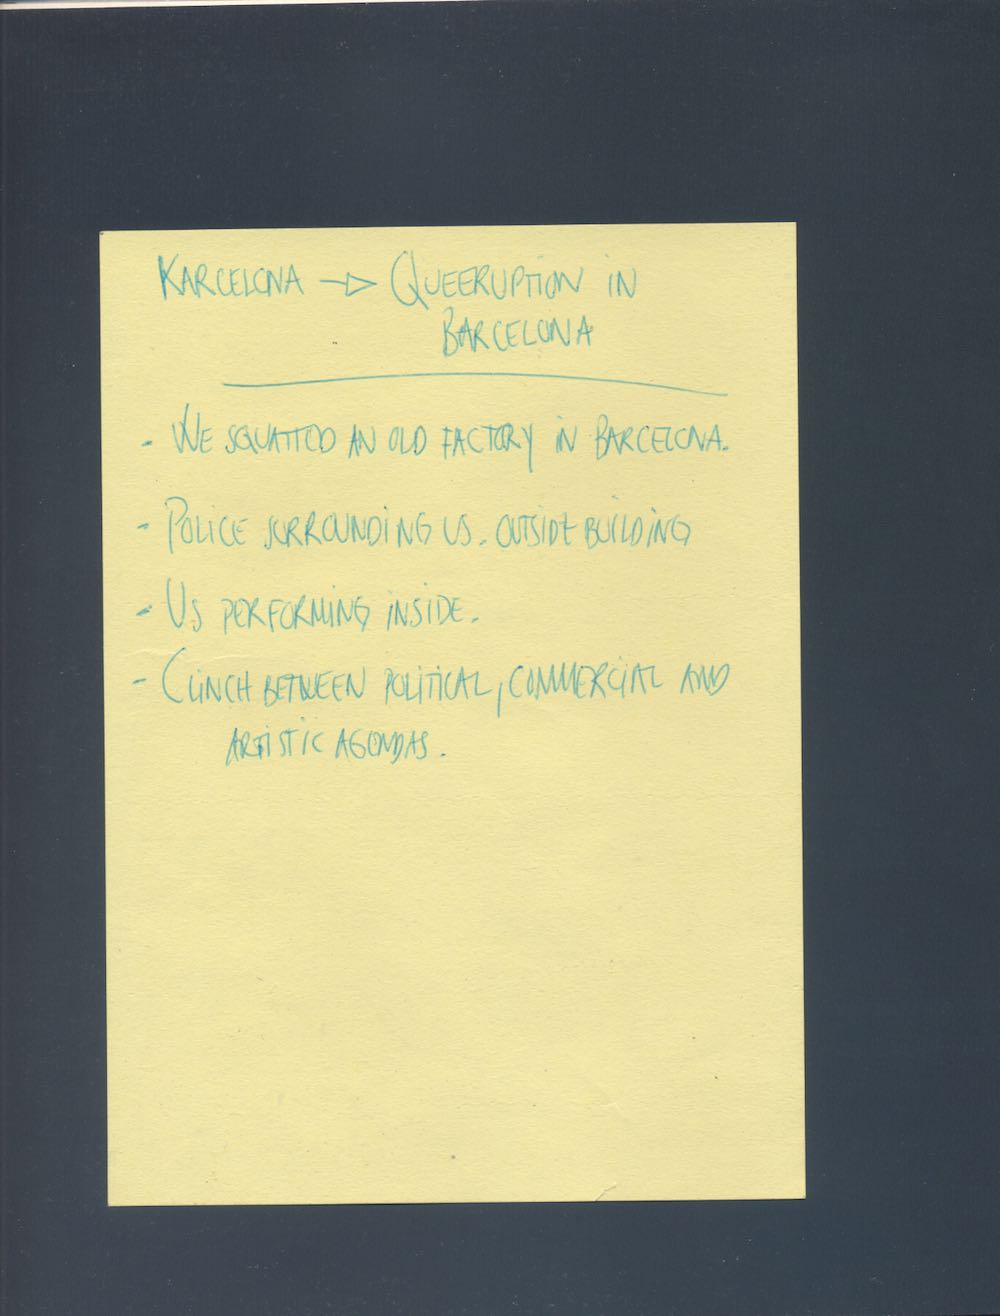 KARCELONA → QUEERUPTION IN
BARCELONA
- WE SQUATTED AN OLD FACTORY IN BARCELONA.
- POLICE SURROUNDING US. OUTSIDE BUILDING
- US PERFORMING INSIDE.
- CLINCH BETWEEN POLITICAL, COMMERCIAL AND
ARTISTIC AGENDAS.